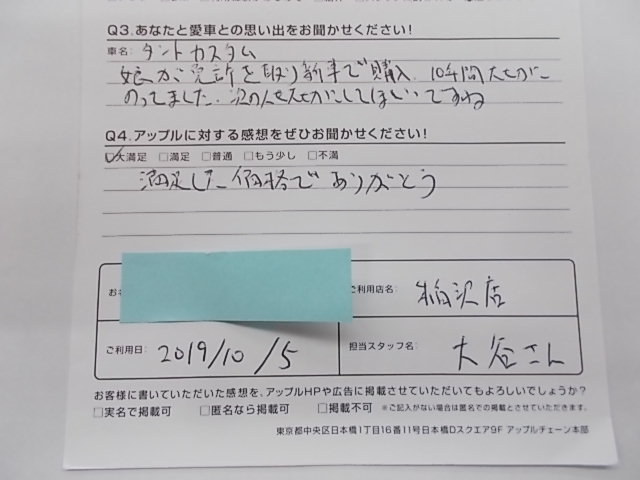 Q3.あなたと愛車との思い出をお聞かせください!
車名: タントカスタム
娘が免許を取り新車で購入 10年間大切に
のってました。次の人も大切にしてほしいですね
Q4.アップルに対する感想をぜひお聞かせください!
☑大満足 □満足 □普通 □もう少し □不満
満足した価格でありがとう
お ご利用店名: 稲沢店
ご利用日: 2019/10/5 担当スタッフ名: 大谷さん
お客様に書いていただいた感想を、アップルHPや広告に掲載させていただいてもよろしいでしょうか?
□実名で掲載可 □匿名なら掲載可 □掲載不可 ※ご記入がない場合は匿名での掲載とさせていただきます。
東京都中央区日本橋1丁目16番11号日本橋Dスクエア9F アップルチェーン本部